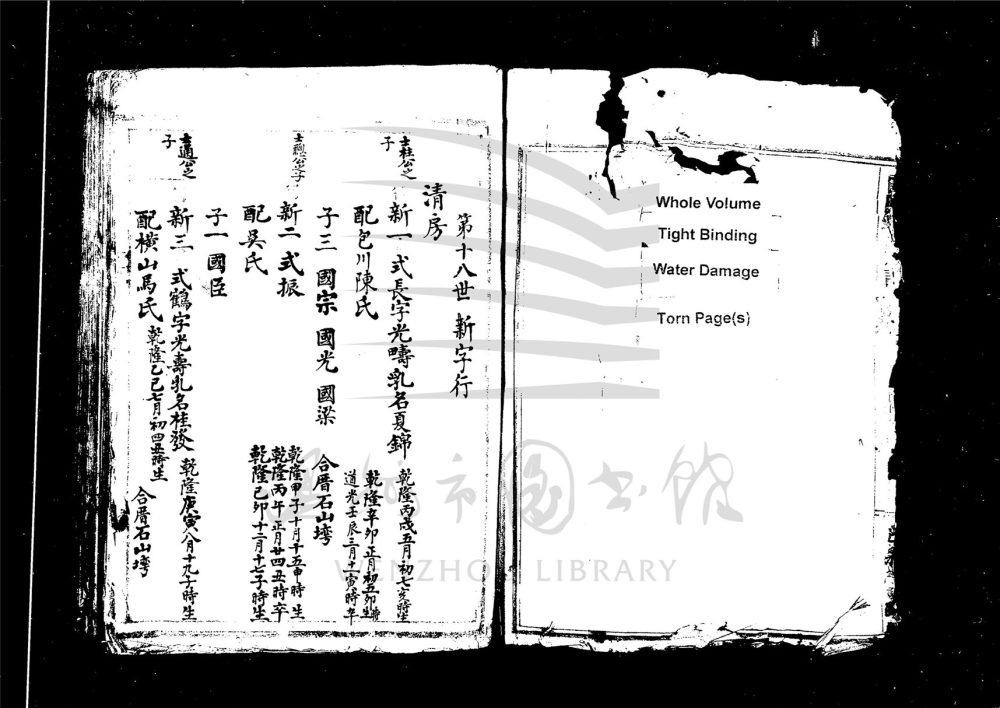 第十八世 新字行
清房
士柱公之子
新一 式長字光疇乳名夏錦 乾隆丙戌五月初七亥時生
配包川陳氏 乾隆辛卯正月初五卯時生
道光壬辰三月十一寅時卒
子三 國宗 國光 國梁 合厝石山塆
士聰公之子
新二 式振 乾隆甲子十月十五申時生
乾隆丙午正月廿四丑時卒
配吳氏 乾隆己卯十二月十七子時生
子一 國臣
士通公之子
新三 式鶴字光壽乳名桂發 乾隆庚寅八月十九子時生
配橫山馬氏 乾隆乙巳七月初四丑時生 合厝石山塆
Whole Volume
Tight Binding
Water Damage
Torn Page(s)
溫州市圖書館
WENZHOU LIBRARY